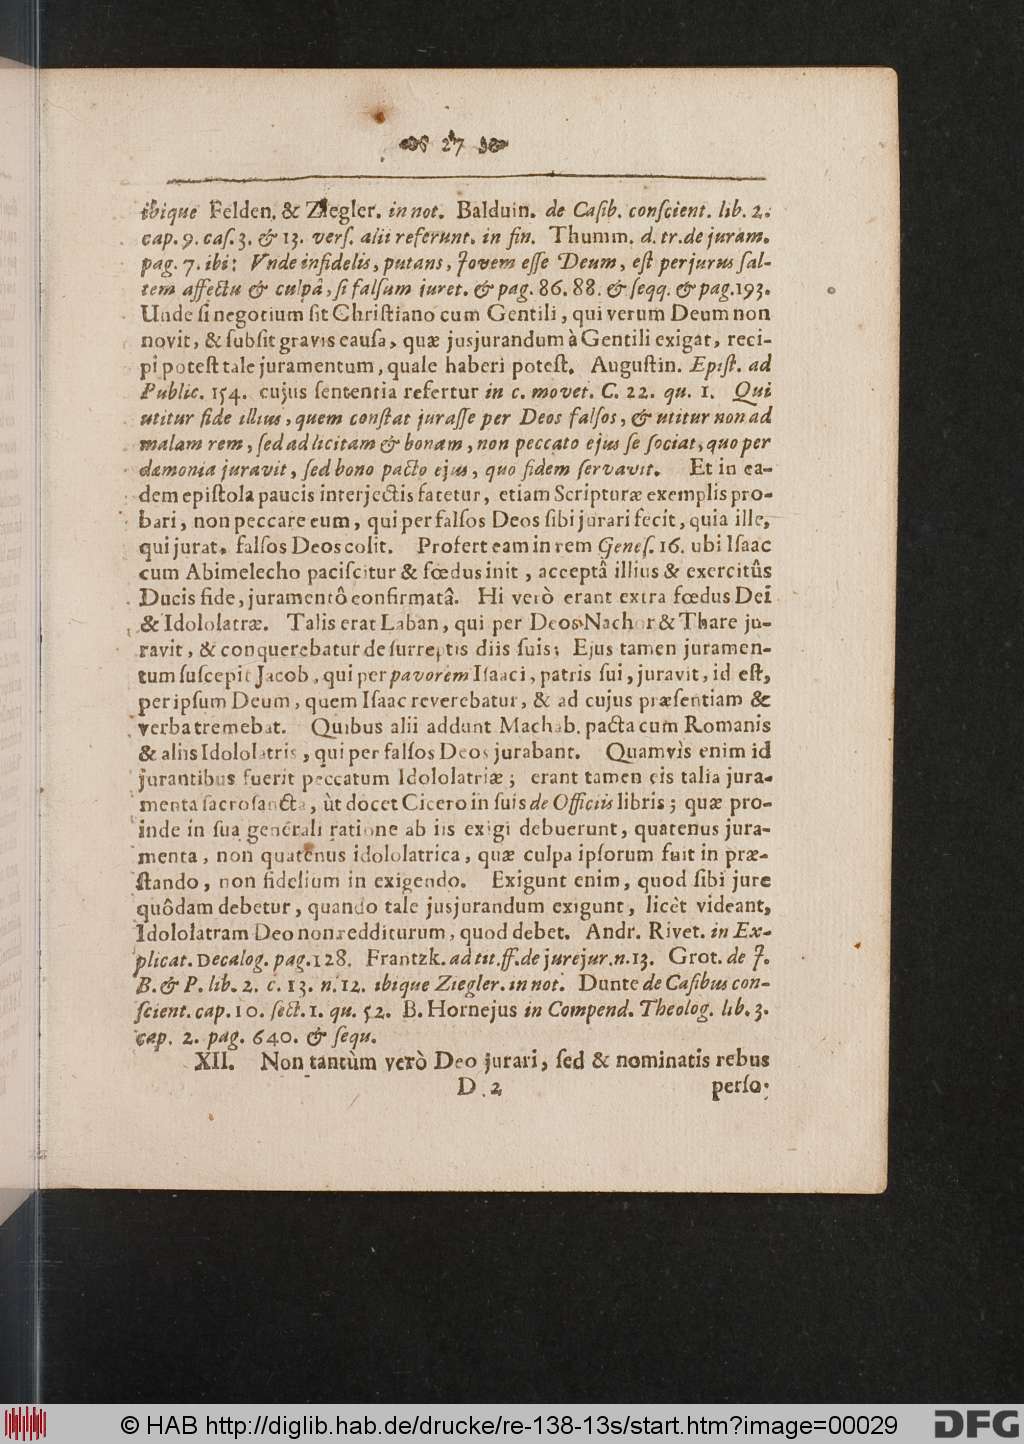 27
ibique Felden. & Ziegler. in not. Balduin. de Caſib. conſcient. lib. 2.
cap. 9. caſ. 3. & 13. verſ. alii referunt. in fin. Thumm. d. tr. de juram.
pag. 7. ibi: Vnde infidelis, putans, Jovem eſſe Deum, eſt perjurus ſal-
tem affectu & culpâ, ſi falſum juret. & pag. 86. 88. & ſeqq. & pag. 193.
Unde ſi negotium ſit Chriſtiano cum Gentili, qui verum Deum non
novit, & ſubſit gravis cauſa, quæ jusjurandum à Gentili exigat, reci-
pi poteſt tale juramentum, quale haberi poteſt. Auguſtin. Epiſt. ad
Public. 154. cujus ſententia refertur in c. movet. C. 22. qu. 1. Qui
utitur fide illius, quem conſtat juraſſe per Deos falſos, & utitur non ad
malam rem, ſed ad licitam & bonam, non peccato ejus ſe ſociat, quo per
dæmonia juravit, ſed bono pacto ejus, quo fidem ſervavit. Et in ea-
dem epiſtola paucis interjectis fatetur, etiam Scripturæ exemplis pro-
bari, non peccare eum, qui per falſos Deos ſibi jurari fecit, quia ille,
qui jurat, falſos Deos colit. Profert eam in rem Geneſ. 16. ubi Iſaac
cum Abimelecho paciſcitur & fœdus init, acceptâ illius & exercitûs
Ducis fide, juramentô confirmatâ. Hi verò erant extra fœdus Dei
& Idololatræ. Talis erat Laban, qui per Deos Nachor & Thare ju-
ravit, & conquerebatur de ſurreptis diis ſuis; Ejus tamen juramen-
tum ſuſcepit Jacob, qui per pavorem Iſaaci, patris ſui, juravit, id eſt,
per ipſum Deum, quem Iſaac reverebatur, & ad cujus præſentiam &
verba tremebat. Quibus alii addunt Machab. pacta cum Romanis
& aliis Idololatris, qui per falſos Deos jurabant. Quamvis enim id
jurantibus fuerit peccatum Idololatriæ; erant tamen eis talia jura-
menta ſacroſancta, ùt docet Cicero in ſuis de Officiis libris; quæ pro-
inde in ſua generali ratione ab iis exigi debuerunt, quatenus jura-
menta, non quatenus idololatrica, quæ culpa ipſorum fuit in præ-
ſtando, non fidelium in exigendo. Exigunt enim, quod ſibi jure
quôdam debetur, quando tale jusjurandum exigunt, licèt videant,
Idololatram Deo non redditurum, quod debet. Andr. Rivet. in Ex-
plicat. Decalog. pag. 128. Frantzk. ad tit. ff. de jurejur. n. 13. Grot. de J.
B. & P. lib. 2. c. 13. n. 12. ibique Ziegler. in not. Dunte de Caſibus con-
ſcient. cap. 10. ſect. 1. qu. 52. B. Hornejus in Compend. Theolog. lib. 3.
cap. 2. pag. 640. & ſequ.
XII. Non tantùm verò Deo jurari, ſed & nominatis rebus
D 2 perſo-
© HAB http://diglib.hab.de/drucke/re-138-13s/start.htm?image=00029
DFG